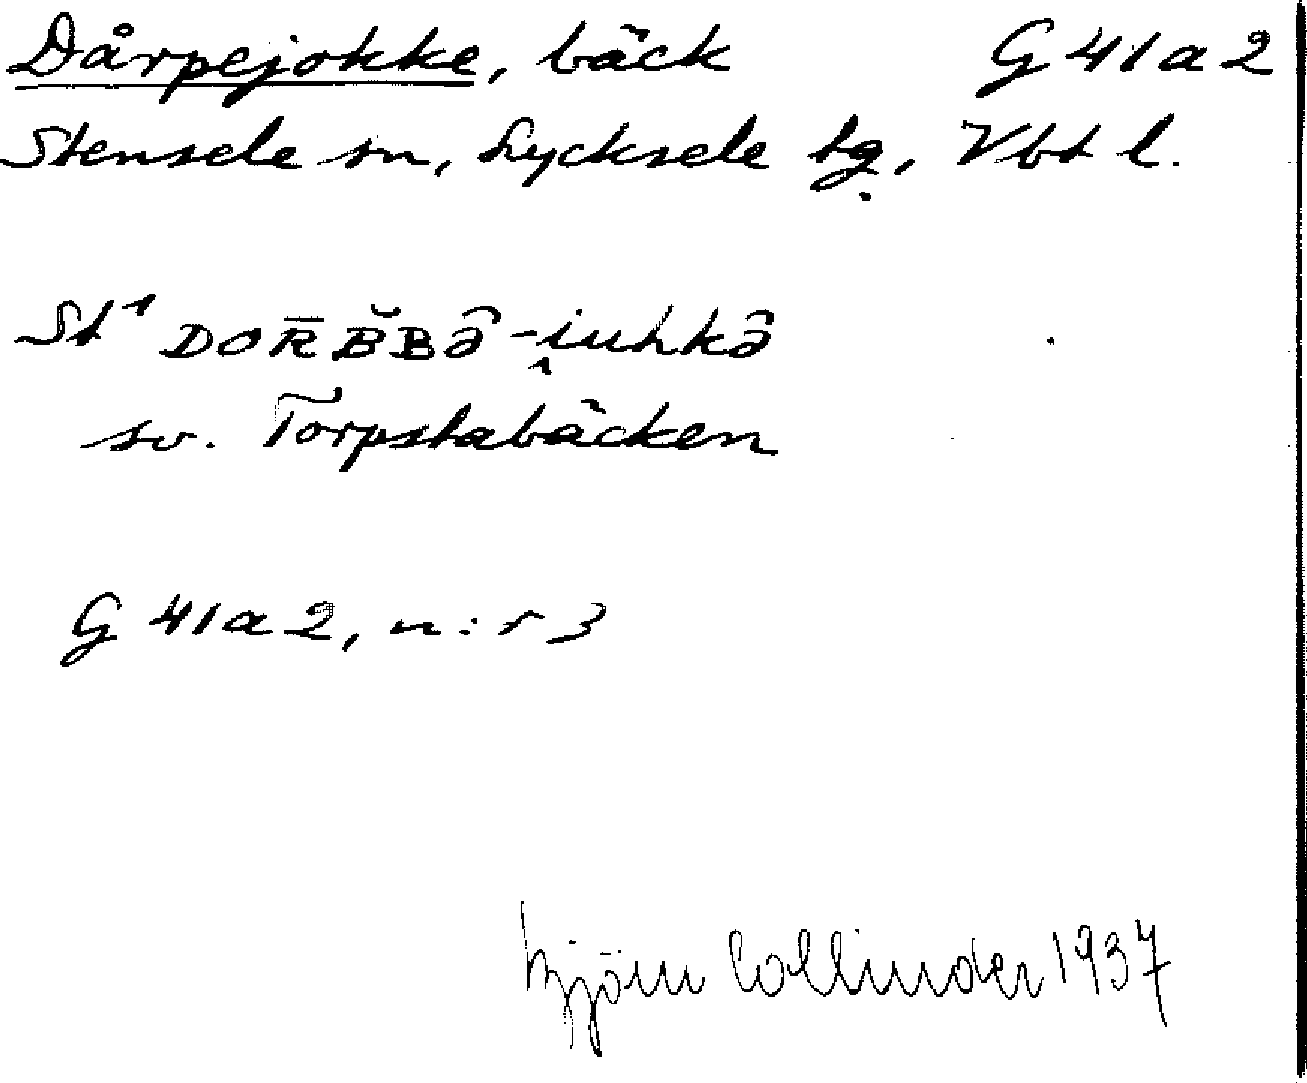 Dårpejokke, bäck G 41 a 2
Stensele sn, Lycksele tg, Vbt l.
St¹ DOR̄B̆Bə̂-i̭uhkə̂
sv. Torpstabäcken
G 41 a 2, n:r 3
Björn Collinder 1937